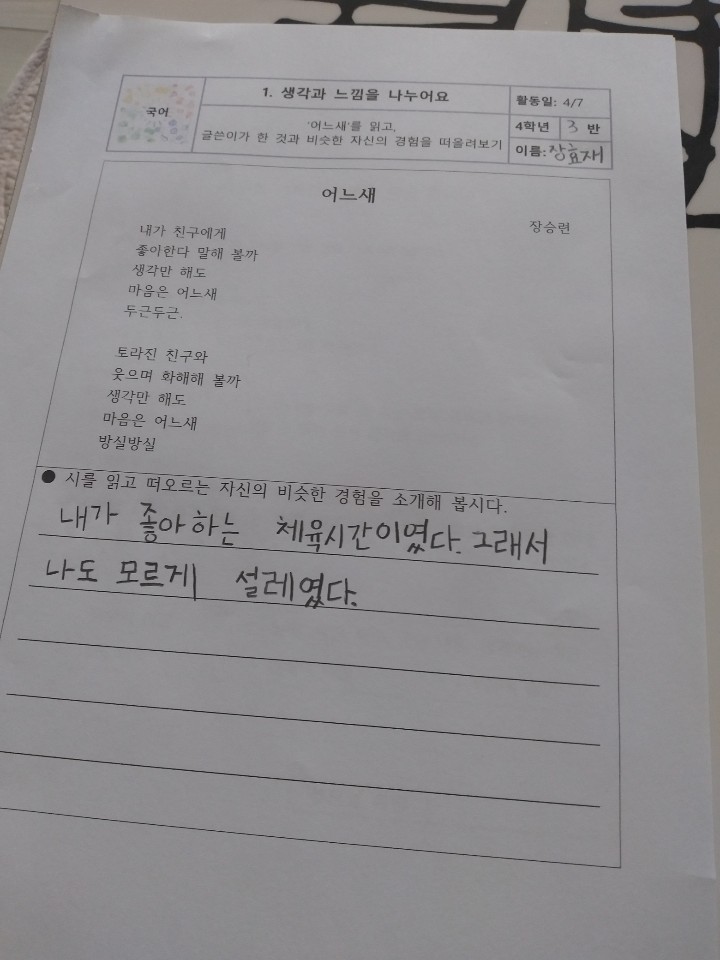 국어
1. 생각과 느낌을 나누어요
활동일: 4/7
'어느새'를 읽고,
글쓴이가 한 것과 비슷한 자신의 경험을 떠올려보기
4학년 3 반
이름: 장효재
어느새
장승련
내가 친구에게
좋아한다 말해 볼까
생각만 해도
마음은 어느새
두근두근.
토라진 친구와
웃으며 화해해 볼까
생각만 해도
마음은 어느새
방실방실
● 시를 읽고 떠오르는 자신의 비슷한 경험을 소개해 봅시다.
내가 좋아하는 체육시간이였다. 그래서
나도 모르게 설레였다.